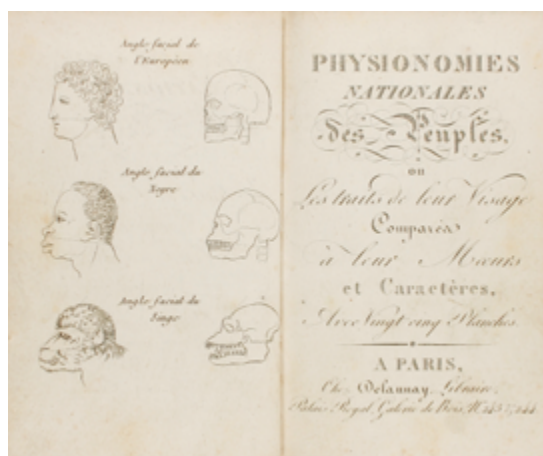 Angle facial de
l'Européen
Angle facial du
Negre
Angle facial du
Singe
PHYSIONOMIES
NATIONALES
des Peuples,
ou
Les traits de leur Visage
Comparés
à leur Mœurs
et Caractères,
Avec Vingt cinq Planches.
A PARIS,
Chez Delaunay, Libraire,
Palais Royal, Galerie de Bois, N.